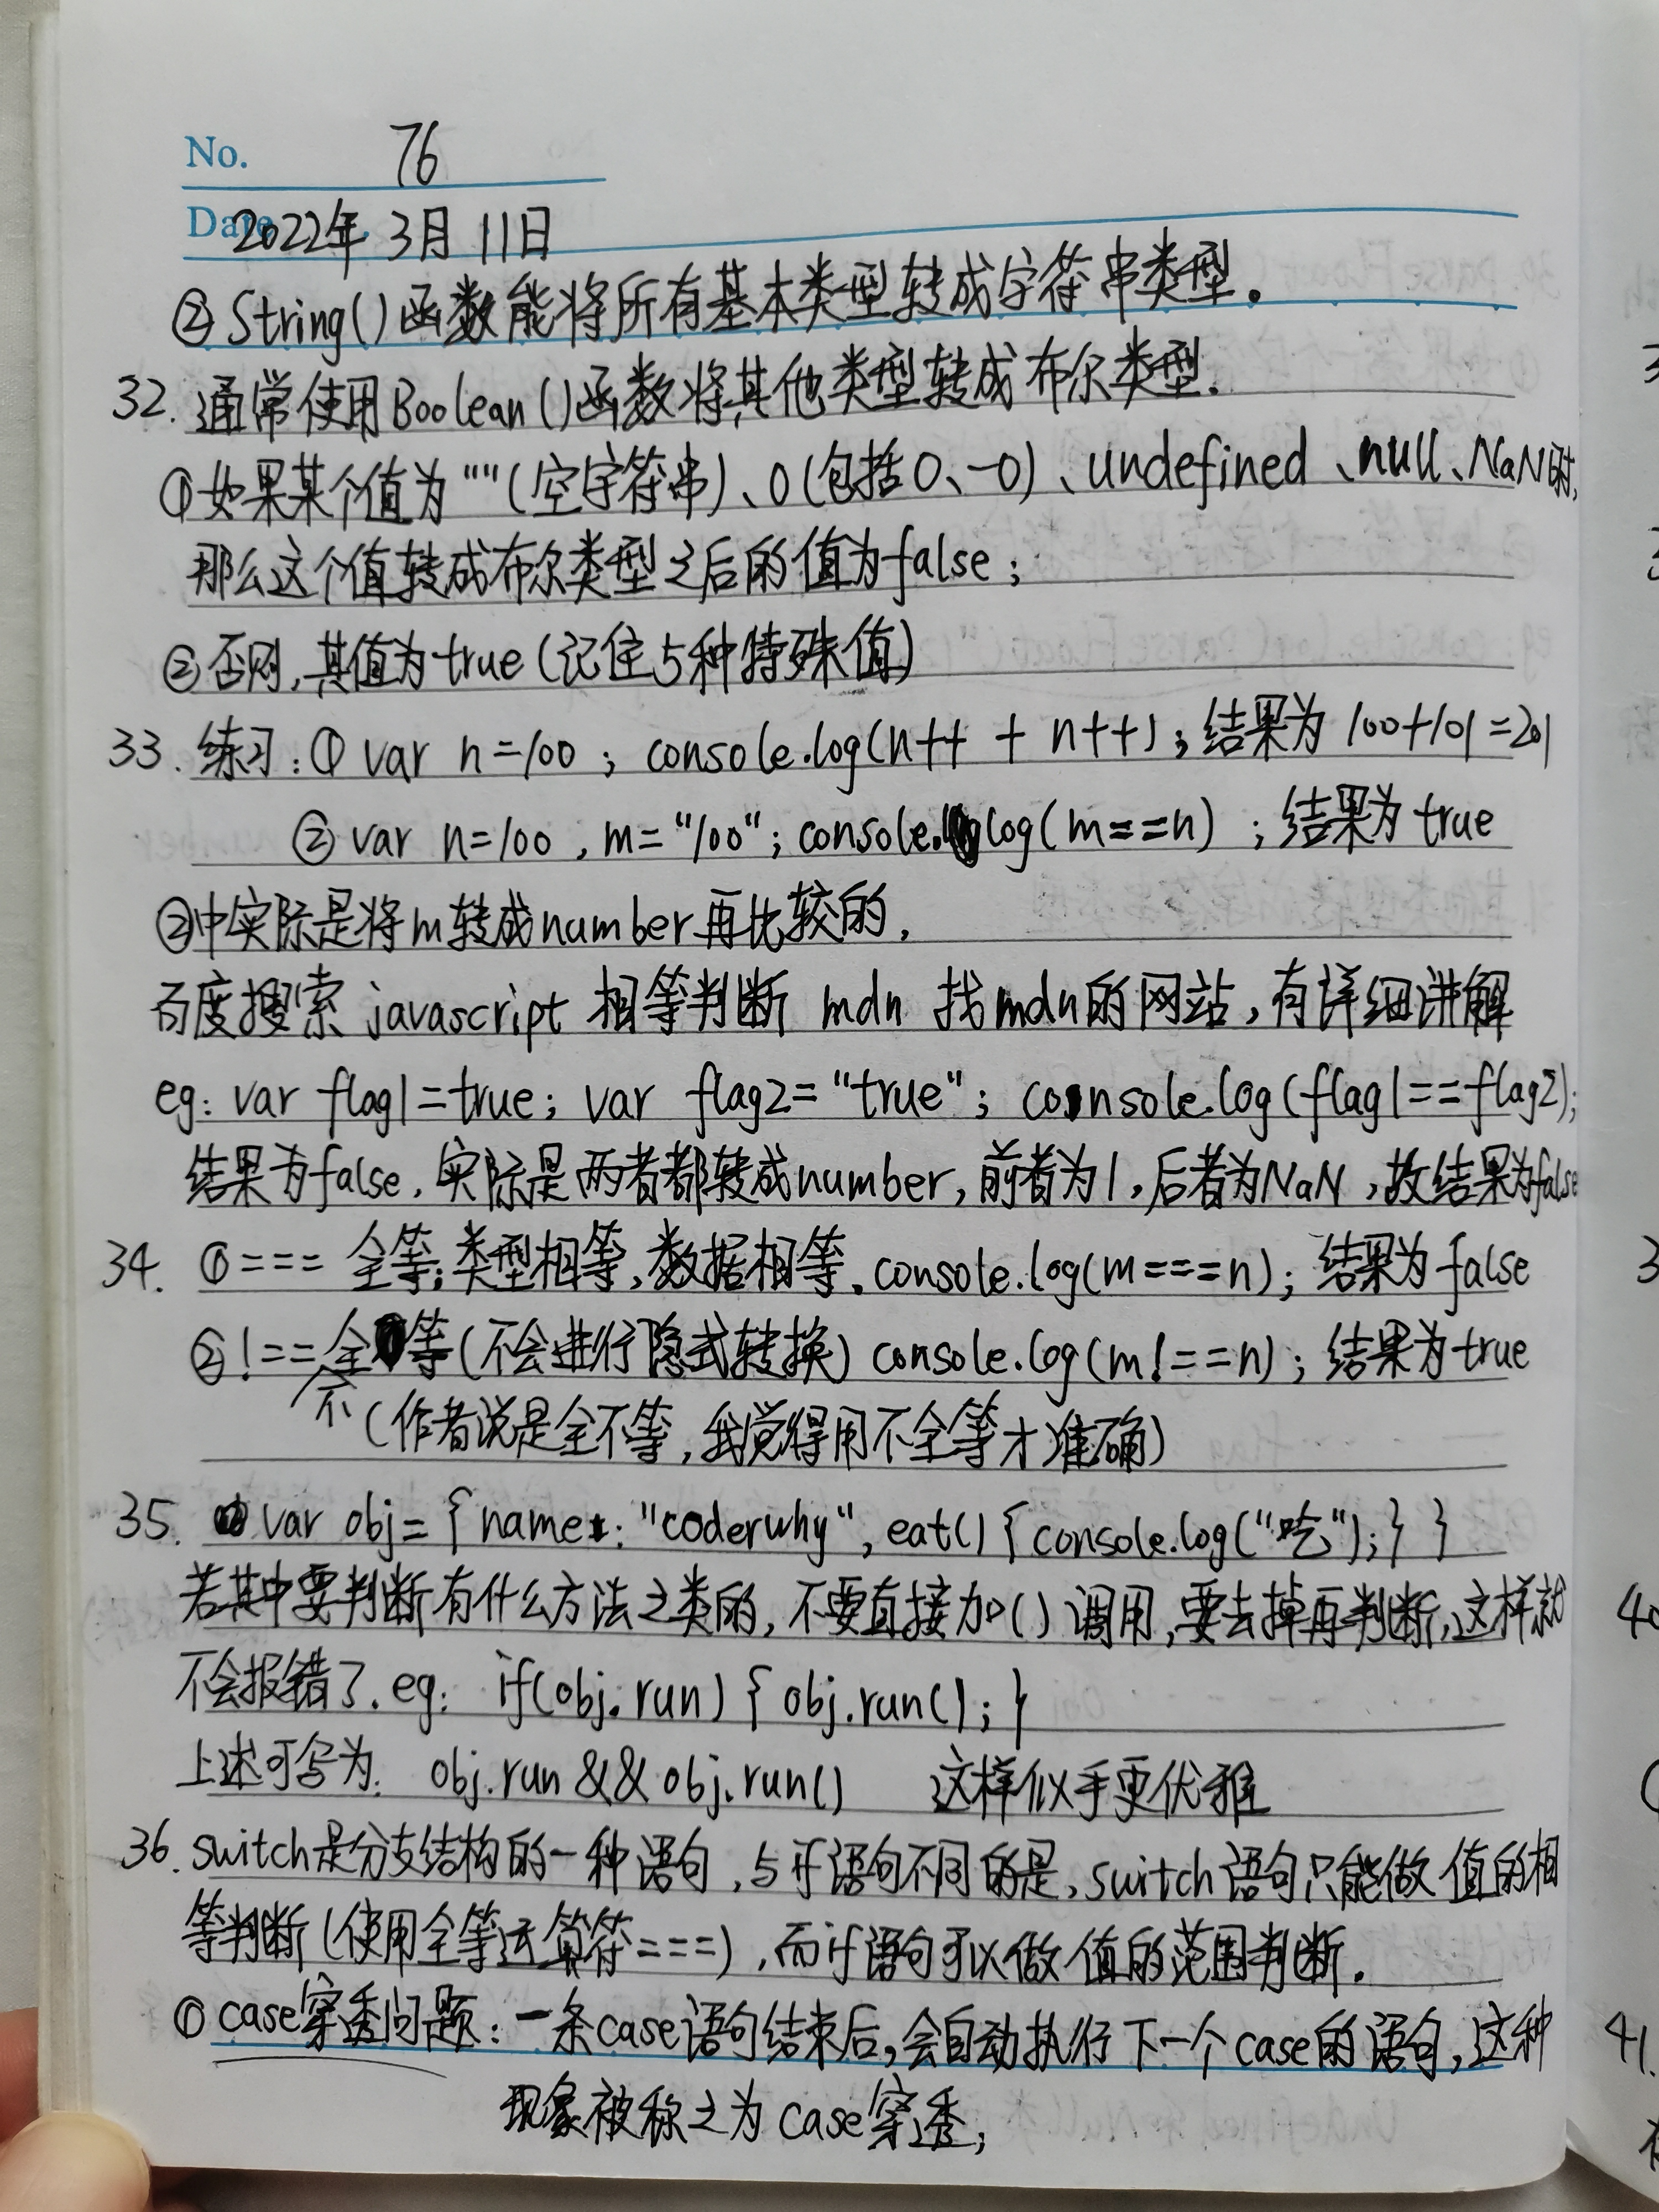 No. 76
Date 2022年 3月 11日
② String()函数能将所有基本类型转成字符串类型。
32. 通常使用Boolean()函数将其他类型转成布尔类型.
①如果某个值为""(空字符串)、0(包括0、-0)、undefined、null、NaN时,
那么这个值转成布尔类型之后的值为false;
②否则,其值为true(记住5种特殊值)
33. 练习:① var n=100 ; console.log(n++ + n++); 结果为 100+101=201
② var n=100 , m="100"; console.log(m==n) ; 结果为true
②中实际是将m转成number再比较的.
百度搜索 javascript 相等判断 mdn 找mdn的网站,有详细讲解
eg: var flag1=true; var flag2="true"; console.log(flag1==flag2);
结果为false. 实际是两者都转成number,前者为1,后者为NaN,故结果为false
34. ①=== 全等;类型相等,数据相等. console.log(m===n); 结果为false
②!==不全等(不会进行隐式转换) console.log(m!==n); 结果为true
(作者说是全不等,我觉得用不全等才准确)
35. var obj={name:"coderwhy", eat(){console.log("吃");} }
若其中要判断有什么方法之类的,不要直接加()调用,要去掉再判断,这样就
不会报错了. eg: if(obj.run) { obj.run(); }
上述可写为: obj.run && obj.run() 这样似乎更优雅
36. switch是分支结构的一种语句,与if语句不同的是,switch语句只能做值的相
等判断(使用全等运算符===),而if语句可以做值的范围判断.
① case穿透问题:一条case语句结束后,会自动执行下一个case的语句,这种
现象被称之为case穿透;
3
3
40
41.